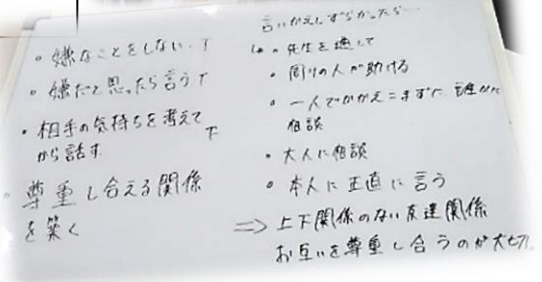 ・嫌なことをしない。T
・嫌だと思ったら言う T
・相手の気持ちを考えて
から話す。 T
・尊重し合える関係
を築く
言いかえしずらかったら…
・先生を通して
・周りの人が助ける
・一人でかかえこまずに 誰かに
相談
・大人に相談
・本人に正直に言う
⇒ 上下関係のない友達関係
お互いを尊重し合うのが大切。